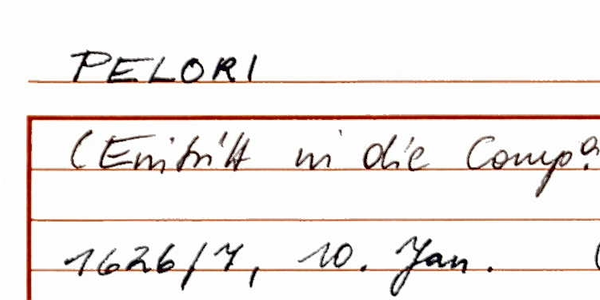 PELORI
(Eintritt in die Compª.
1626/7, 10. Jan. (